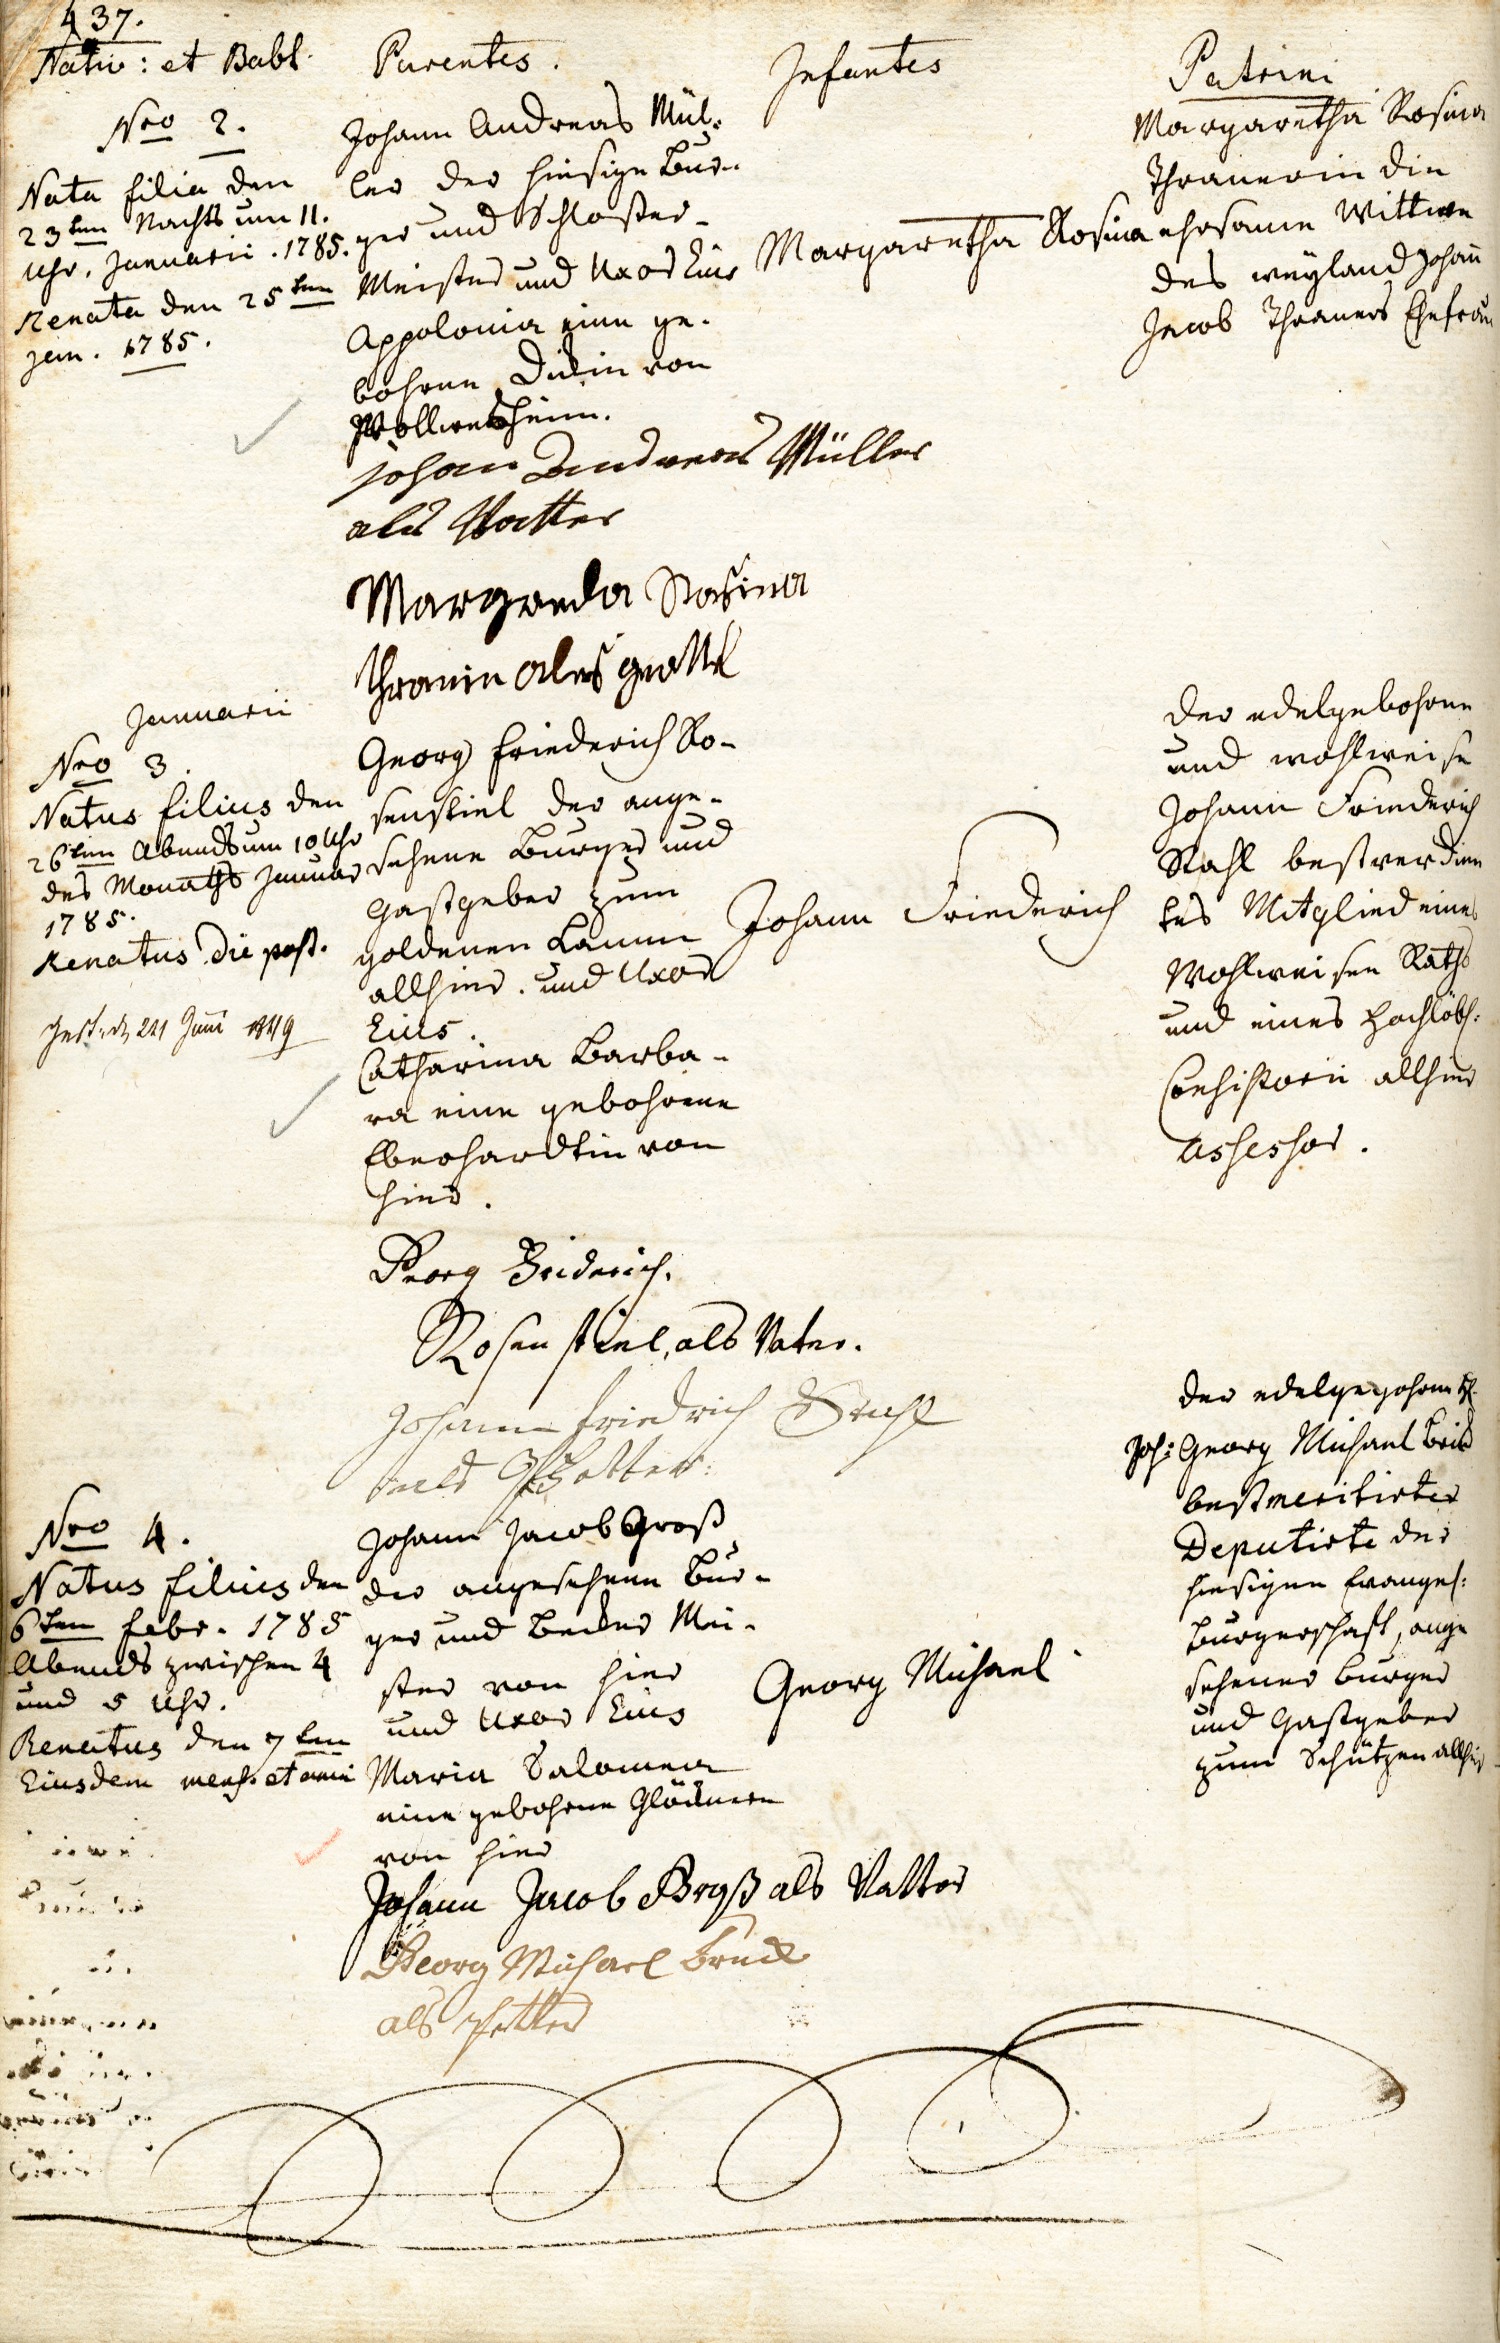 437.
Nativ: et Babt.
Parentes.
Infantes
Patrini
Nro 2.
Nata filia den
23ten Nachts um 11.
Uhr, Januarii. 1785.
Renata den 25ten
jan. 1785.
Johann Andreas Mül-
ler der hiesige Bur-
ger und Schlosser-
Meister und Uxor Eius
Appolonia eine ge-
bohrne Dickin von
Wollmesheim.
Margaretha Rosina
Margaretha Rosina
Thranerin die
ehrsame Wittwe
des weyland Johann
Jacob Thraners Ehefrau
Johan Andreas Müller
als Vatter
Margreda Rosina
Thranin als gettel
Januarii
Nro 3.
Natus filius den
26ten Abends um 10 Uhr
des Monaths Januar
1785.
Renatus die post.
gest. d. 21 Juni 1849
Georg Friederich Ro-
senstiel der ange-
sehene Burger und
Gastgeber zum
goldenen Lamm
allhier. und Uxor
Eius.
Catharina Barba-
ra eine gebohrne
Eberhardtin von
hier.
Johann Friederich
der edelgebohrne
und wohlweise
Johann Friederich
Stahl bestverdien
tes Mitglied eines
Wohlweisen Raths
und eines Hochlöbl:
Consistorii allhier
assessor.
Georg Friderich.
Rosenstiel, als Vater.
Johann Friedrich Stahl
als Pfetter.
Nro 4.
Natus filius den
6ten febr. 1785
Abends zwischen 4
und 5 Uhr.
Renatus den 7ten
Eiusdem mens. et anni
Johann Jacob Groß
der angesehene Bur-
ger und Becker Mei-
ster von hier
und Uxor Eius
Maria Salomea
eine gebohrne
von hier
Georg Michael
der edelgebohrne H.
Joh: Georg Michael
bestmeritirter
Deputirte der
hiesigen Evangel:
Burgerschaft, ange
sehener Burger
und Gastgeber
zum Schützen allhier
Johann Jacob Groß als Vatter
Georg Michael
als Pfetter